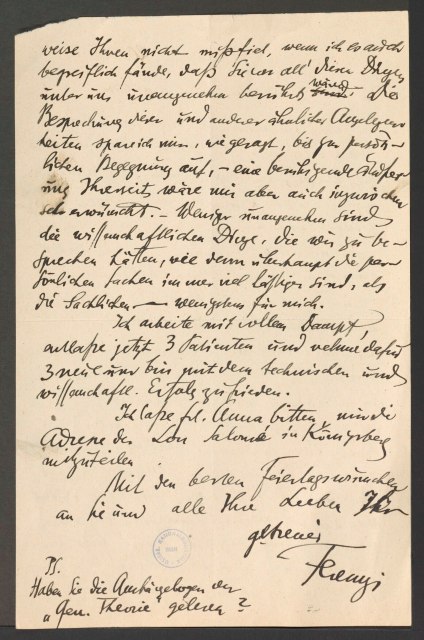 weise Ihnen nicht mißfiel, wenn ich es auch
begreiflich fände, daß Sie von all' diesen Dingen
unter uns unangenehm berührt wären. Die
Besprechung dieser und anderer ähnlicher Angelegen-
heiten spare ich mir, wie gesagt, bis zur persön-
lichen Begegnung auf, – eine beruhigende Äußer-
ung Ihrerseits wäre mir aber auch inzwischen
sehr erwünscht. – Weniger unangenehm sind
die wissenschaftlichen Dinge, die wir zu be-
sprechen hätten, wie denn überhaupt die per-
sönlichen Sachen immer viel lästiger sind, als
die Sachlichen — wenigstens für mich.
Ich arbeite mit vollem Dampf,
entlaße jetzt 3 Patienten und nehme dafür
3 neue und bin mit dem technischen und
wissenschaftl. Erfolg zufrieden.
Ich laße frl. Anna bitten, mir die
Adresse der Lou Salomé in Königsberg
mitzuteilen.
Mit den besten Feiertagswünschen
an Sie und alle Ihre Lieben Ihr
getreuer
Ferenczi
PS.
Haben Sie die Aushängebogen der
„Gen. Theorie" gelesen?